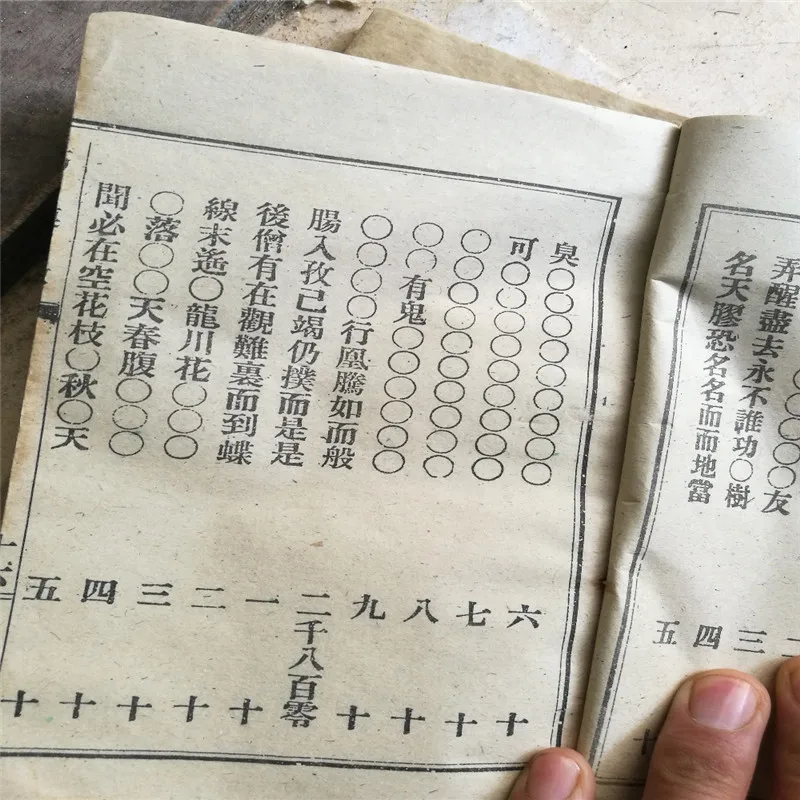 ○○○○○友
弄醒盡去永不誰功○樹
名天膠恐名名而而地當
二
三
四
五十
臭○○○○○○○○○
可○○○○○○○○○
○○○○○○○○○○
○○有鬼○○○○○○
○○○○行凰騰如而般
腸入孜己竭仍撲而是是
後僧有在觀難裏而到蝶
線末遙○龍川花○○○
○落○○天春腹○○○
聞必在空花枝○秋○天
六十
七十
八十
九十
二千八百零
一十
二十
三十
四十
五十